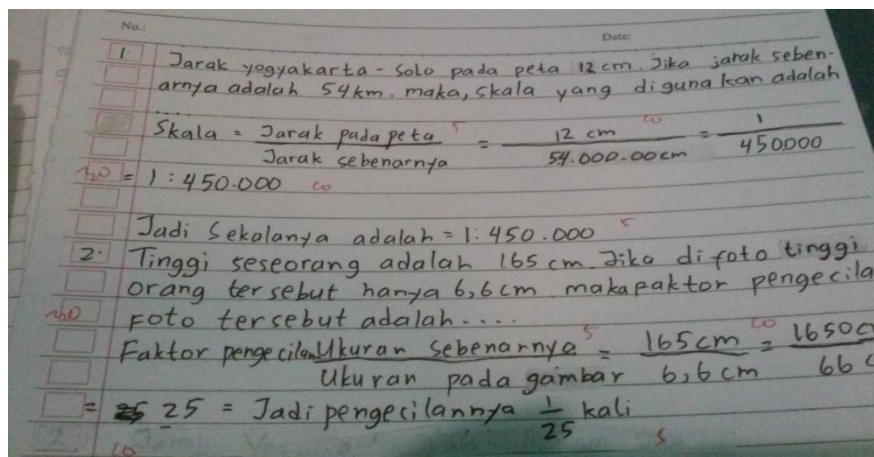 No.:
Date:
1. Jarak yogyakarta - Solo pada peta 12 cm. Jika jarak seben-
arnya adalah 54 km. maka, skala yang diguna kan adalah
Skala = Jarak pada peta / Jarak sebenarnya = 12 cm / 54.000.00 cm = 1 / 450000
= 1 : 450.000
Jadi Sekalanya adalah = 1 : 450.000
2. Tinggi seseorang adalah 165 cm. Jika di foto tinggi
orang ter sebut hanya 6,6 cm. maka paktor pengecila
Foto tersebut adalah...
Faktor pengecilan Ukuran Sebenarnya / Ukuran pada gambar = 165 cm / 6,6 cm = 1650 c / 66 c
= 25 = Jadi pengecilannya 1/25 kali